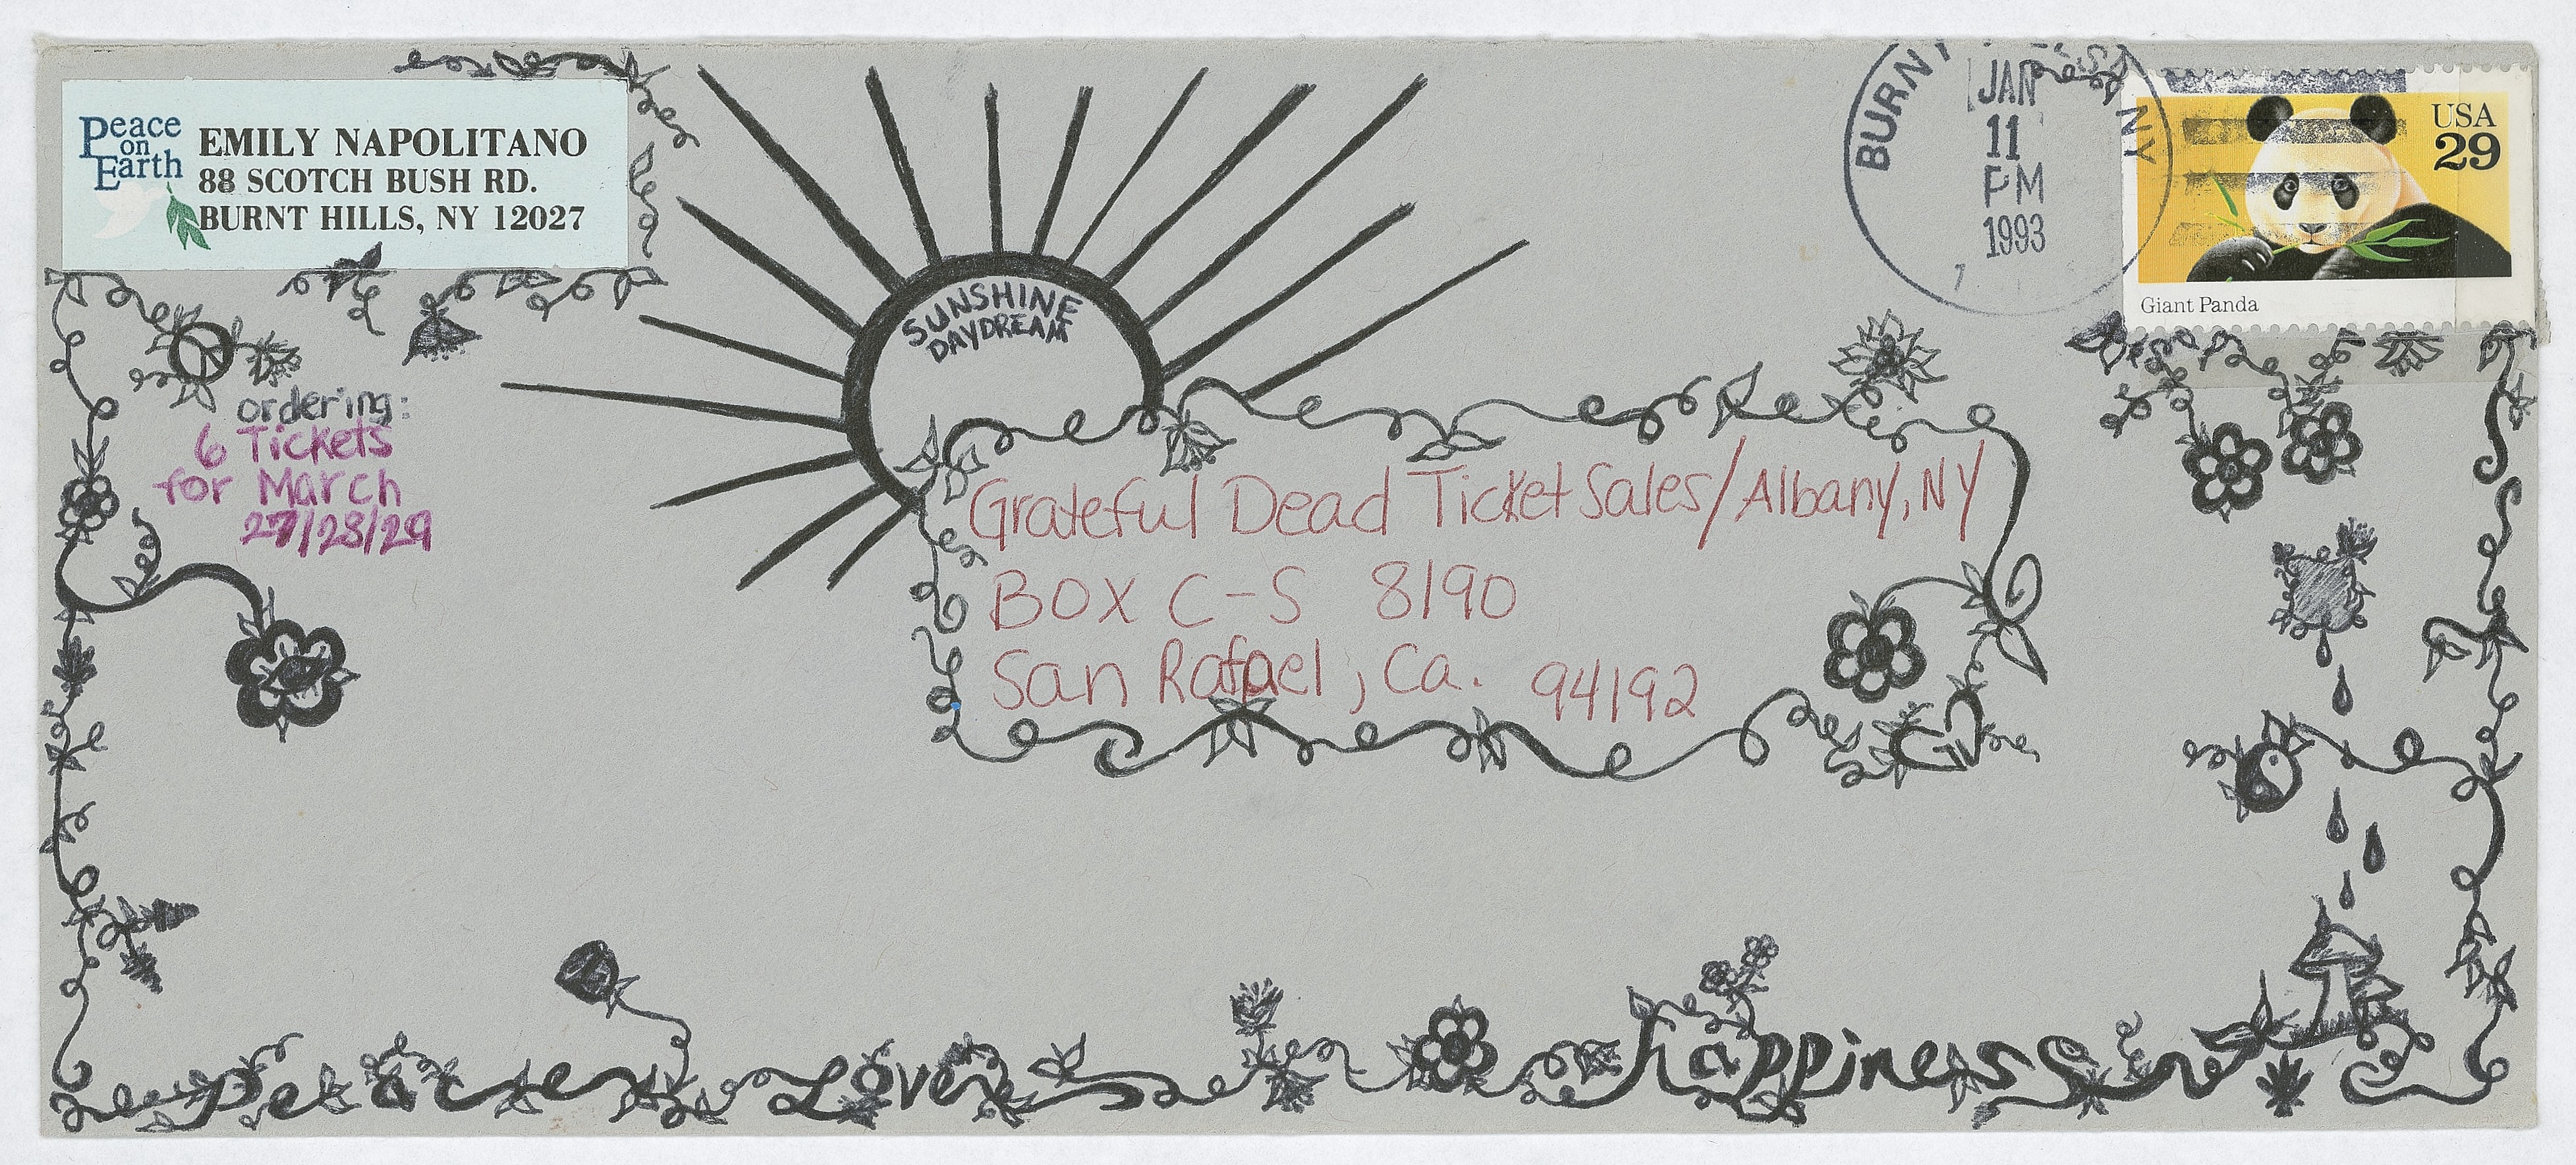 Peace
on
Earth
EMILY NAPOLITANO
88 SCOTCH BUSH RD.
BURNT HILLS, NY 12027
SUNSHINE
DAYDREAM
BURNT
NY
JAN
11
PM
1993
USA
29
Giant Panda
ordering:
6 Tickets
for March
27/28/29
Grateful Dead Ticket Sales/Albany, NY
BOX C-S 8190
San Rafael, Ca. 94192
peace Love happiness